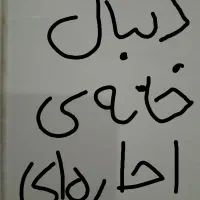 دنبال
خانه‌ی
اجاره‌ای